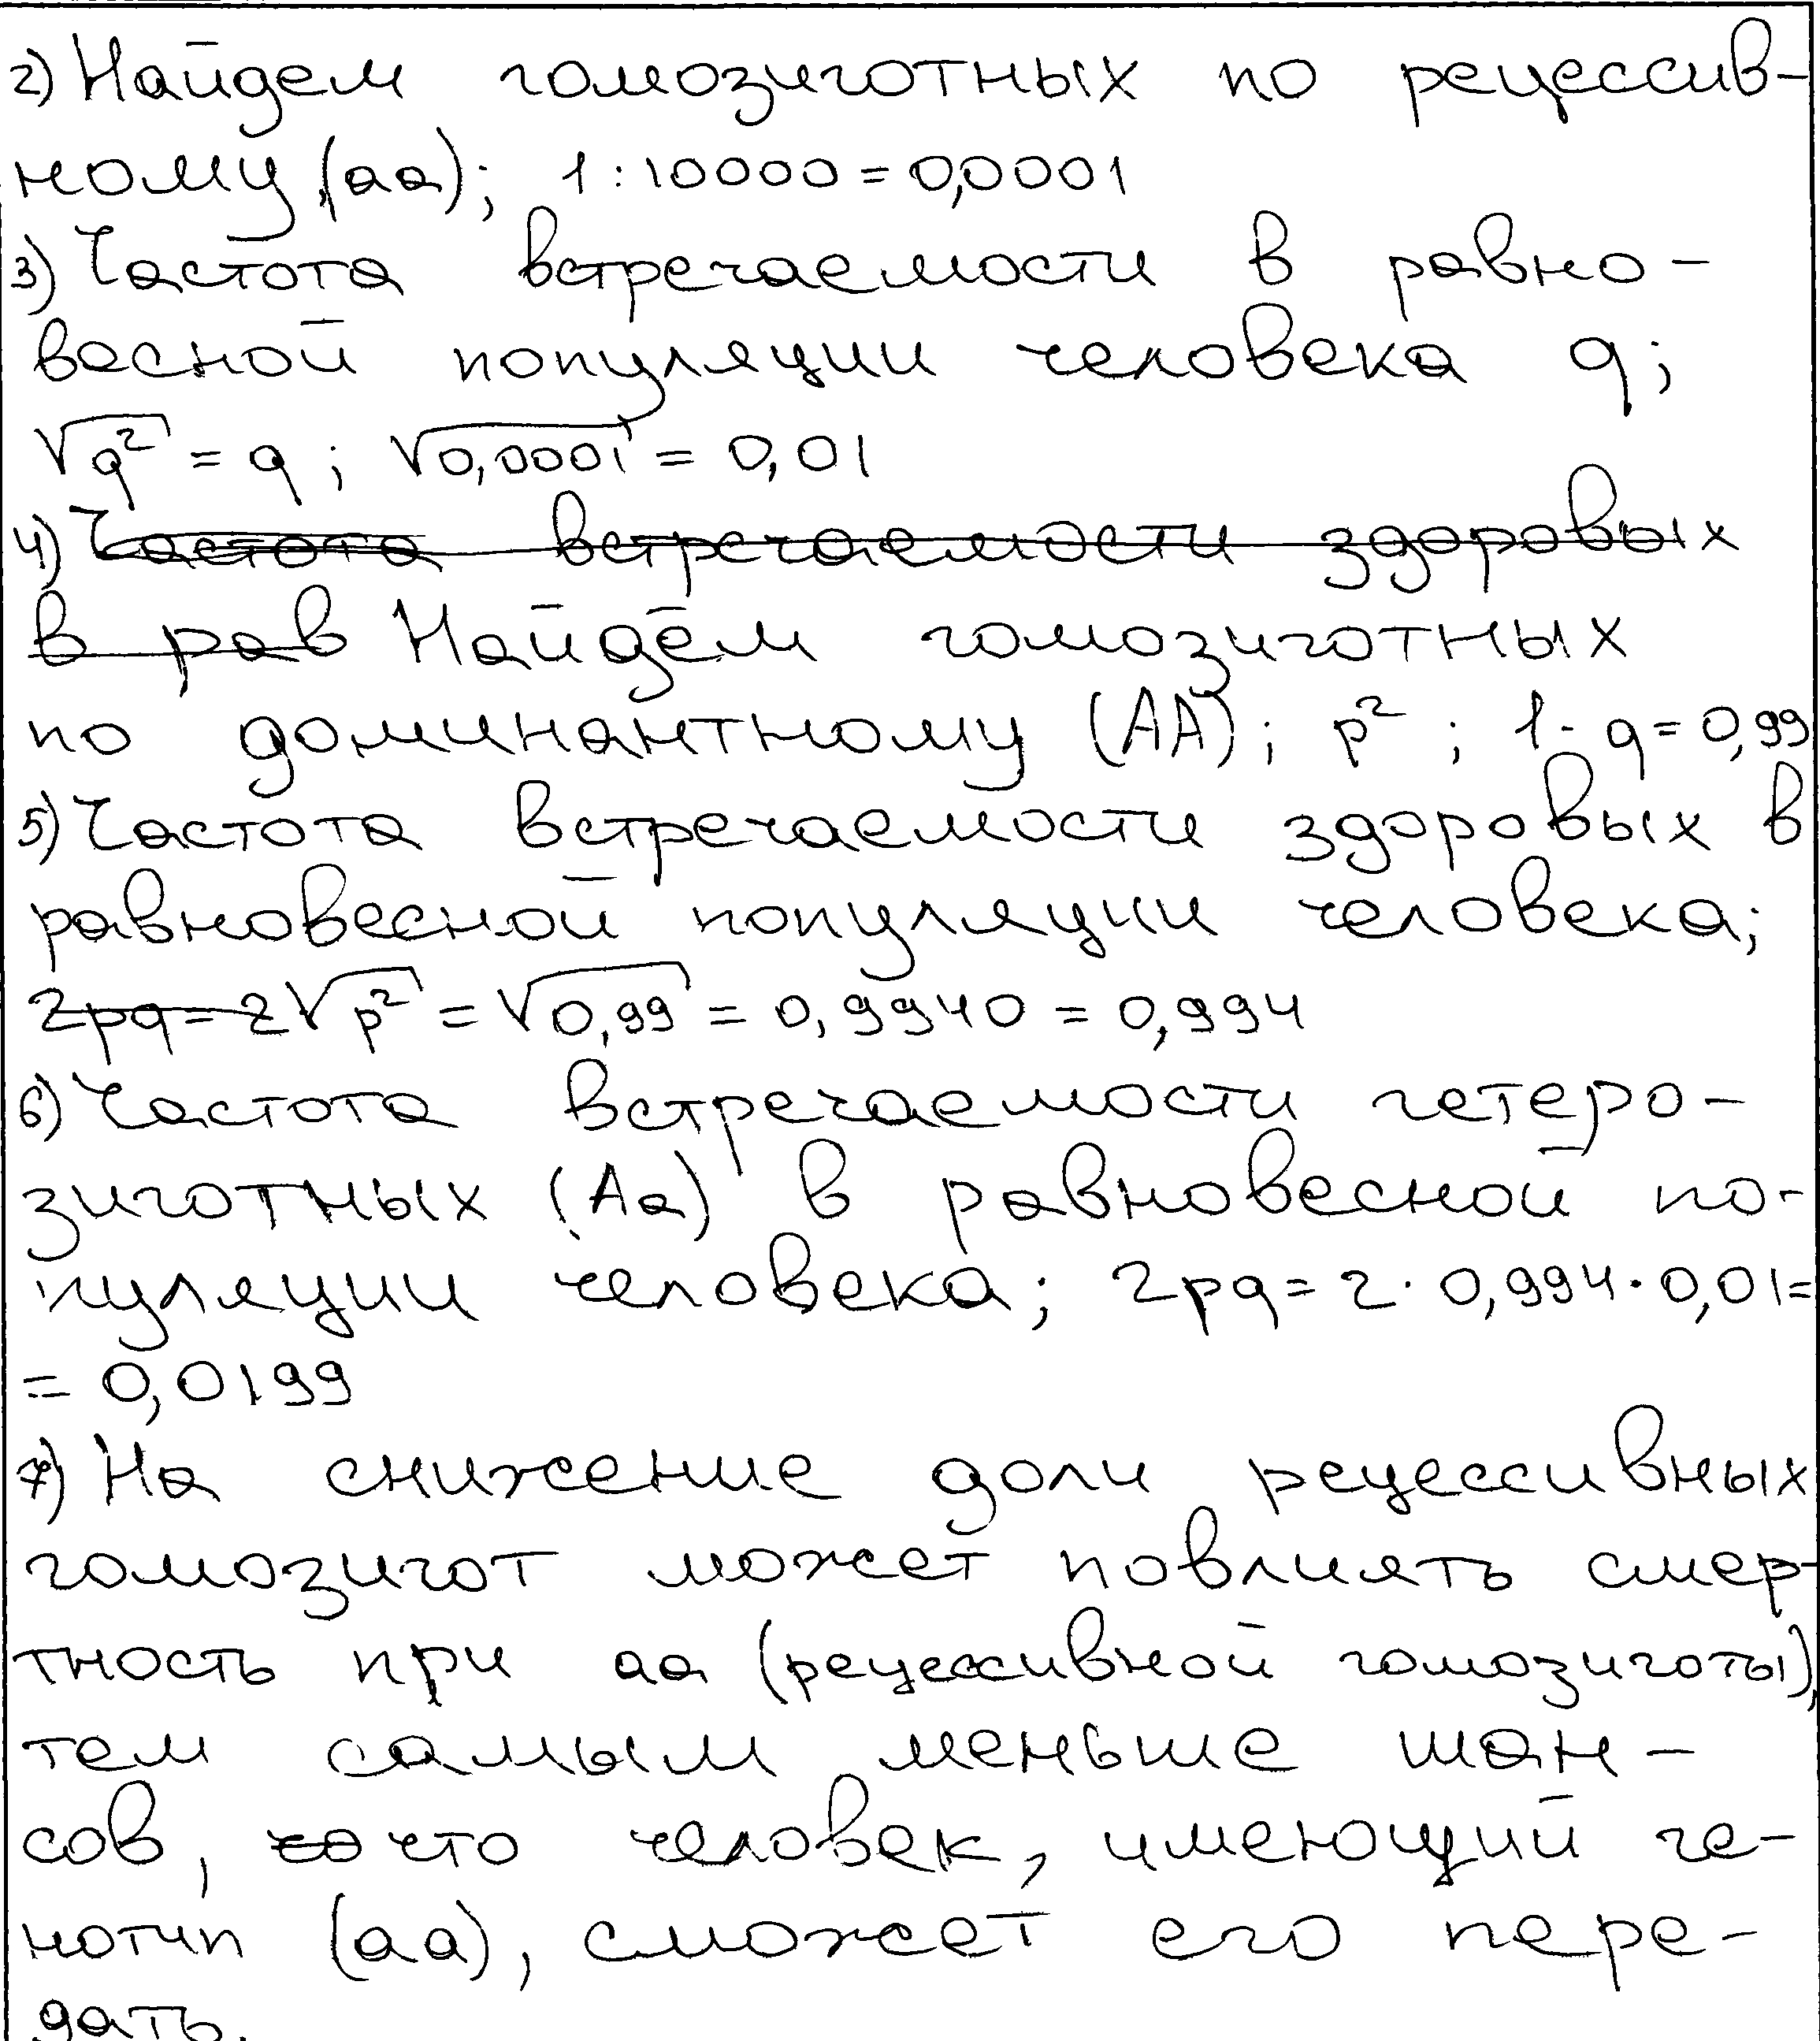 2) Найдем гомозиготных по рецессив-
ному (аа); 1:10000 = 0,0001
3) Частота встречаемости в равно-
весной популяции человека q;
√q² = q ; √0,0001 = 0,01
4) Частота встречаемости здоровых
в рав Найдём гомозиготных
по доминантному (АА); p² ; 1 - q = 0,99
5) Частота встречаемости здоровых в
равновесной популяции человека;
2pq = 2 √p² = √0,99 = 0,9940 = 0,994
6) Частота встречаемости гетеро-
зиготных (Аа) в равновесной по-
пуляции человека; 2pq = 2 · 0,994 · 0,01 =
= 0,0199
7) На снижение доли рецессивных
гомозигот может повлиять смер-
тность при аа (рецессивной гомозиготы),
тем самым меньше шан-
сов, что человек, имеющий ге-
нотип (аа), сможет его пере-
дать.